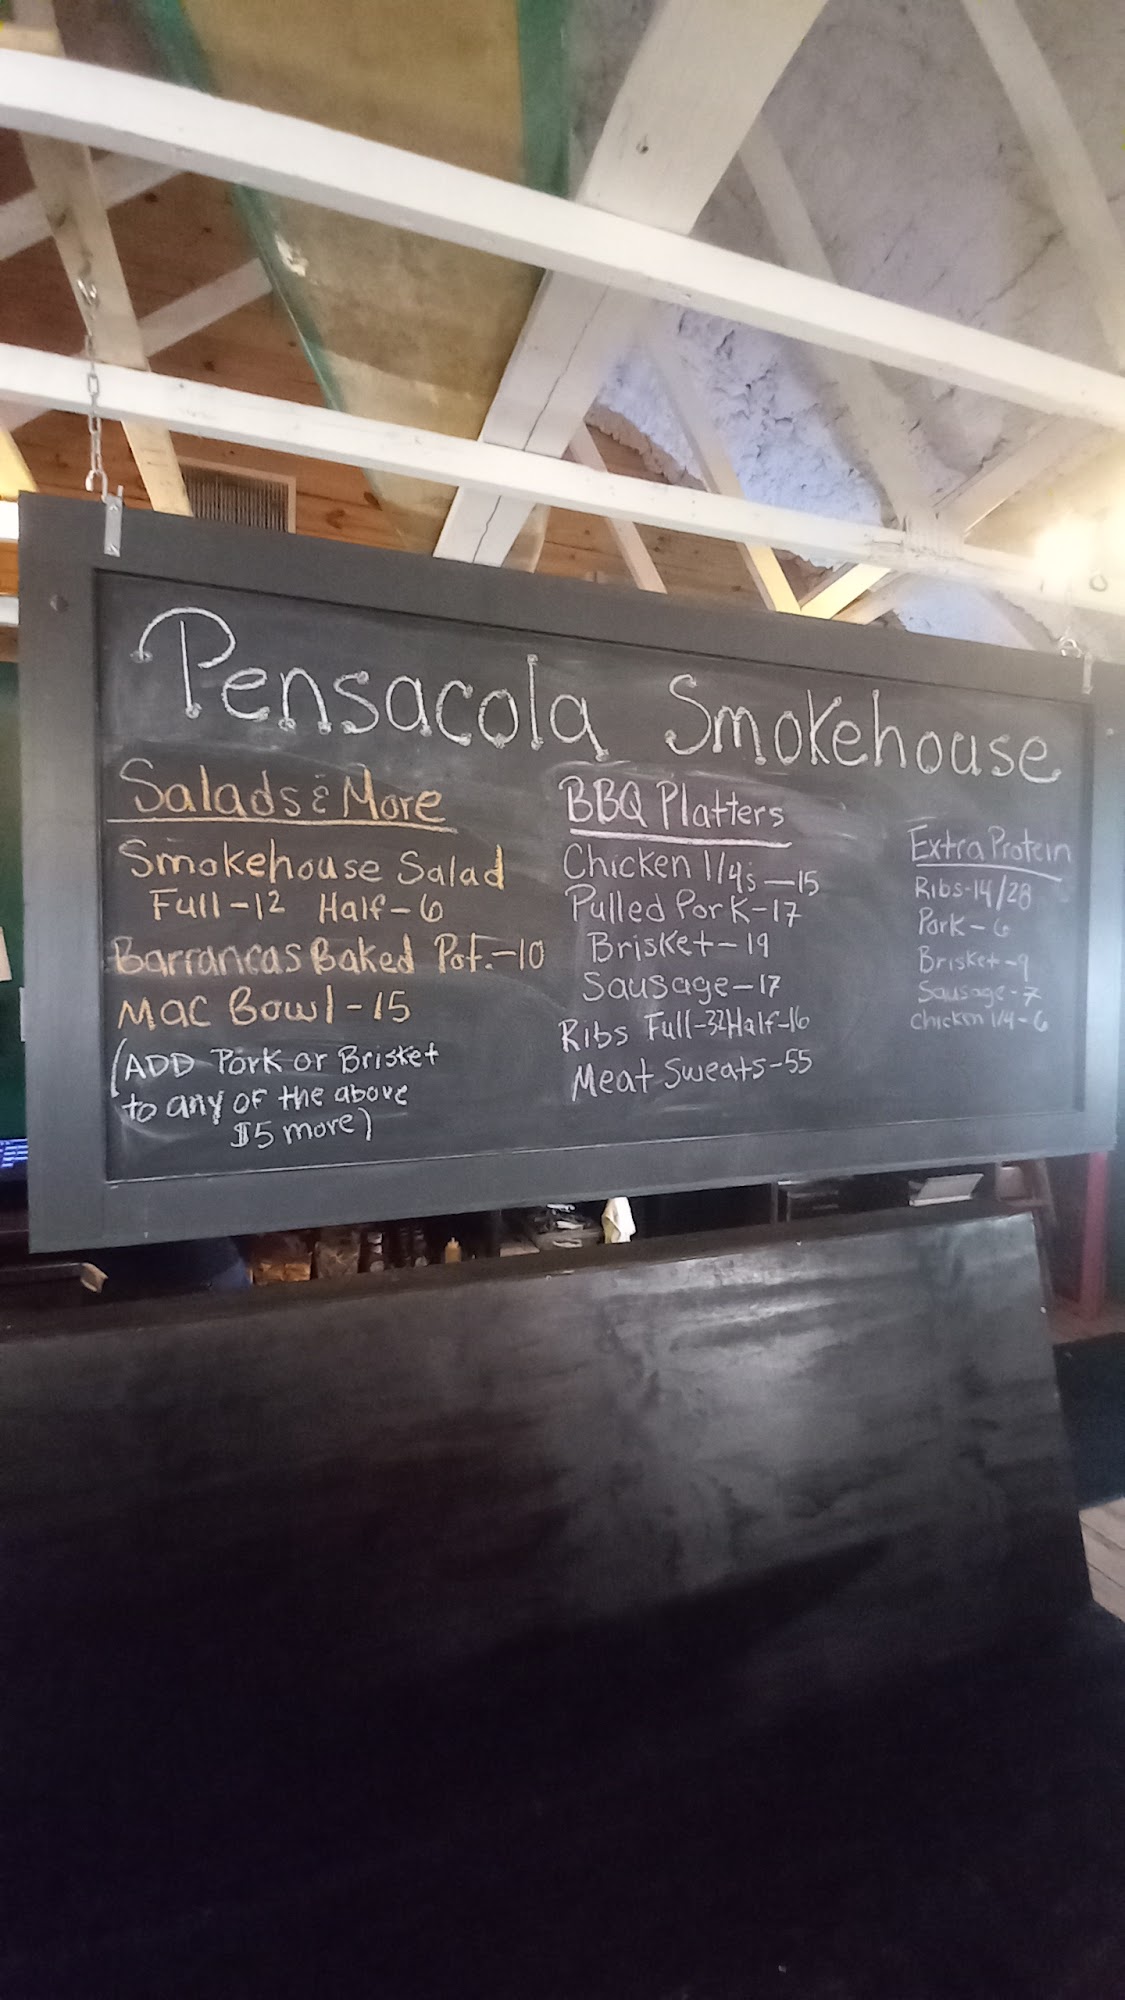 Pensacola Smokehouse
Salads & More
Smokehouse Salad
Full-12 Half-6
Barrancas Baked Pot.-10
Mac Bowl-15
(ADD Pork or Brisket
to any of the above
$5 more)
BBQ Platters
Chicken 1/4s-15
Pulled Pork-17
Brisket-19
Sausage-17
Ribs Full-32 Half-16
Meat Sweats-55
Extra Protein
Ribs-14/28
Pork-6
Brisket-9
Sausage-7
Chicken 1/4-6